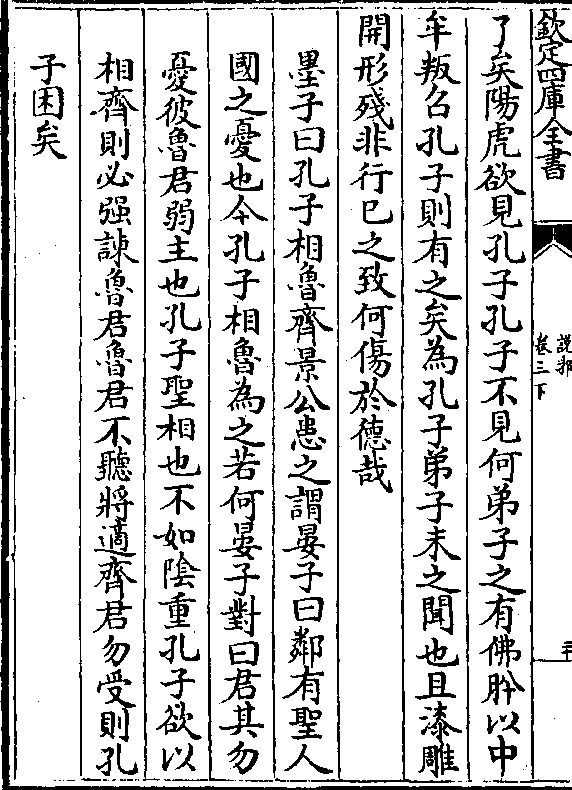 欽定四庫全書
說郛
卷三下
了矣陽虎欲見孔子孔子不見何弟子之有佛肸以中
牟叛召孔子則有之矣為孔子弟子未之聞也且漆雕
開形殘非行已之致何傷於德哉
墨子曰孔子相魯齊景公患之謂晏子曰鄰有聖人
國之憂也今孔子相魯為之若何晏子對曰君其勿
憂彼魯君弱主也孔子聖相也不如陰重孔子欲以
相齊則必强諫魯君魯君不聽將適齊君勿受則孔
子困矣